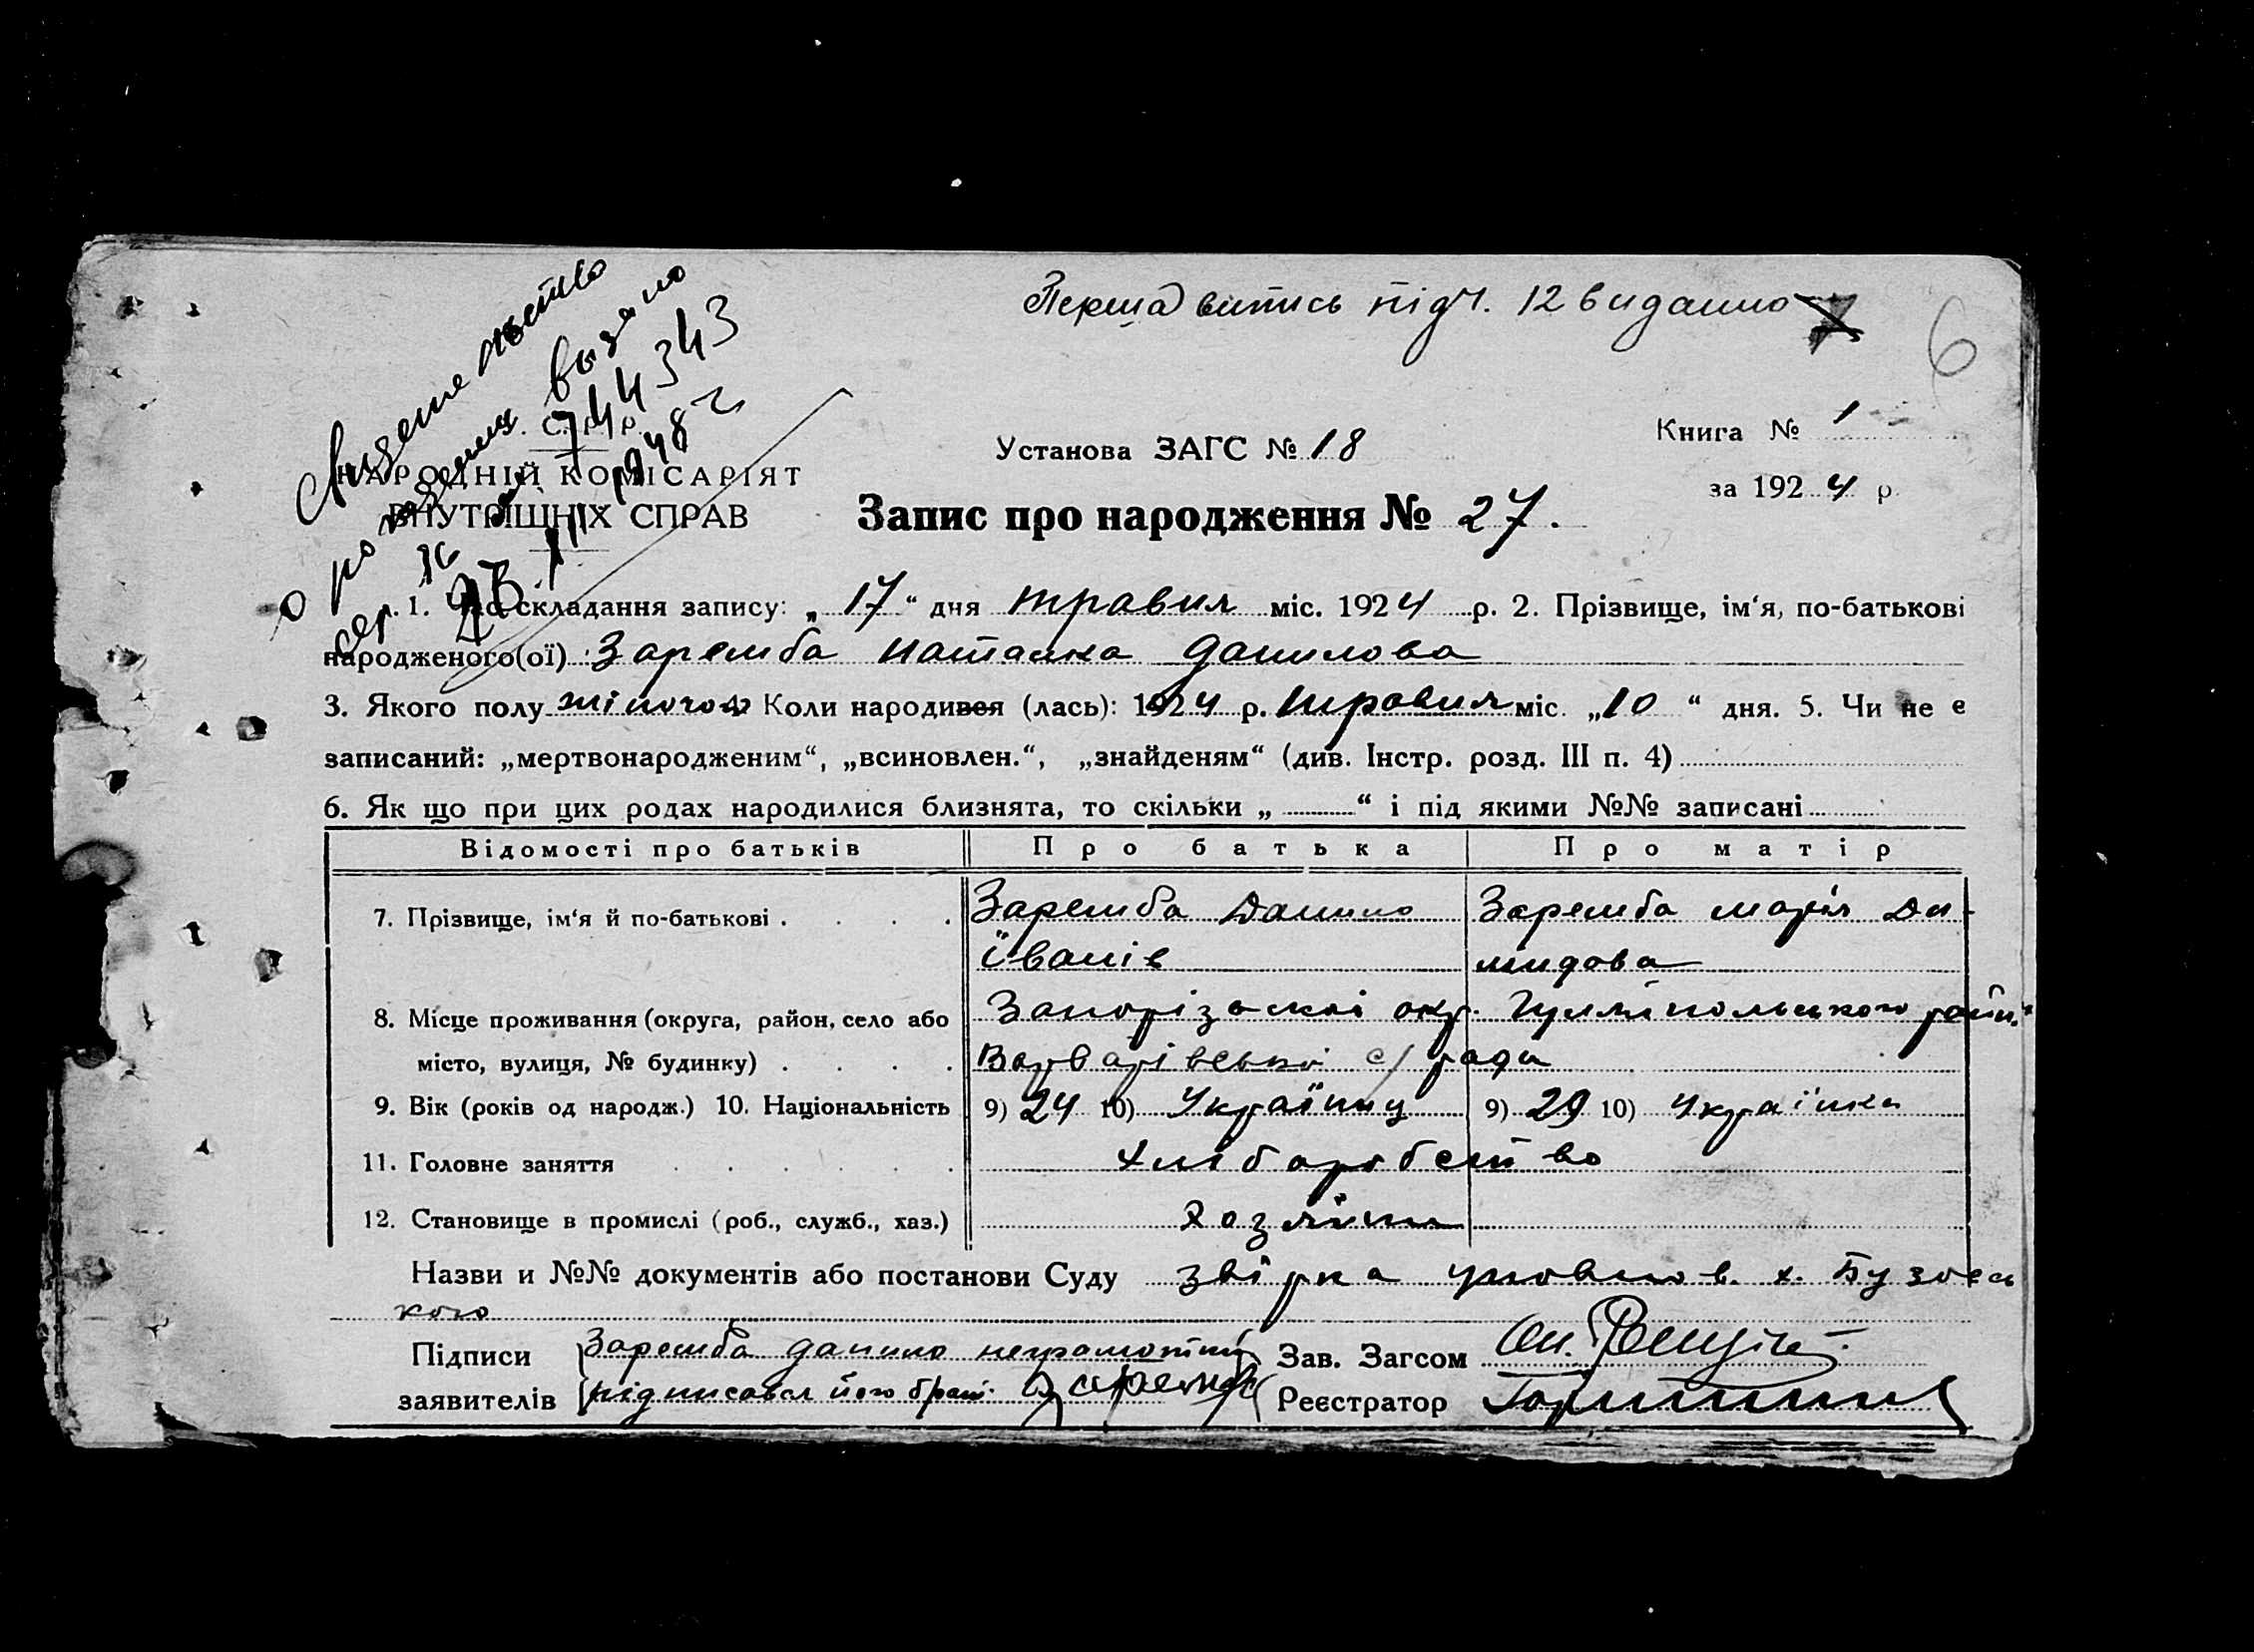 Перша витись під ч. 12 видано
6
Свидетельство
о рождении выдано
серия 744343
1948 г
С. Р. Р.
НАРОДНІЙ КОМІСАРІЯТ
ВНУТРІШНІХ СПРАВ
Установа ЗАГС № 18
Книга № 1
за 1924 р.
Запис про народження № 27.
1. Час складання запису: „ 17 “ дня травня міс. 1924 р. 2. Прізвище, ім‘я, по-батькові
народженого(ої) Заремба Наталка Данилова
3. Якого полу жіночого 4. Коли народився (лась): 1924 р. травня міс. „10 “ дня. 5. Чи не є
записаний: „мертвонародженим“, „всиновлен.“, „знайденям“ (див. Інстр. розд. III п. 4)
6. Як що при цих родах народилися близнята, то скільки „ “ і під якими №№ записані
Відомості про батьків Про батька Про матір
7. Прізвище, ім‘я й по-батькові . . . . Заремба Данило Заремба Марія Ди-
Іванів мидова
8. Місце проживання (округа, район, село або Запорізької окр. Гуляйпольського район.
місто, вулиця, № будинку) . . . . Варварівської с/ ради
9. Вік (років од народж.) 10. Національність 9) 24 10) Українц 9) 29 10) Українка
11. Головне заняття . . . . . . Хліборобство
12. Становище в промислі (роб., служб., хаз.) Хазяїни
Назви и №№ документів або постанови Суду звірка уповнов. х. Бузовсь
кого
Підписи Заремба Данило неграмотний Зав. Загсом
заявителів підписався його брат Заремба Реєстратор